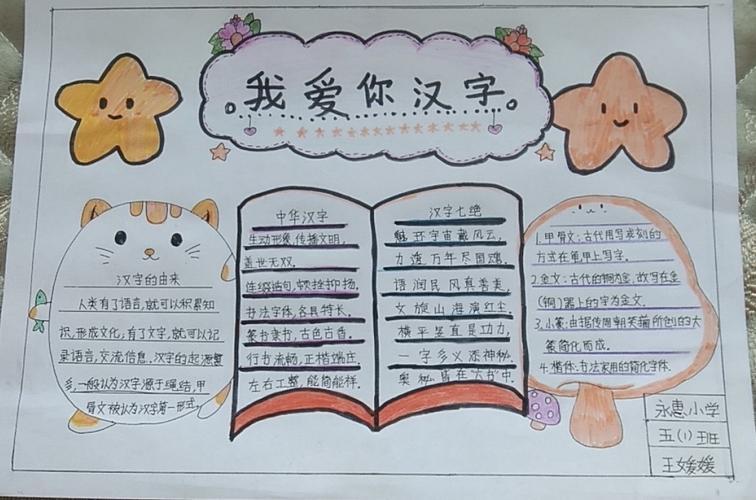 我爱你汉字
汉字的由来
人类有了语言,就可以积累知
识,形成文化,有了文字,就可以记
录语言,交流信息,汉字的起源繁
多,一般认为汉字源于绳结,甲
骨文被认为汉字第一形式,
中华汉字
生动形象,传播文明,
盖世无双,
连级造句,顿挫抑扬,
书法字体,各具特长,
篆书隶书,古色古香,
行书流畅,正楷端庄
左右工整,能简能祥,
汉字七绝
魅环宇宙戴风云,
力透万年尽国魂,
语润民风真善美,
文旋山海演红尘,
横平竖直是功力,
一字多义添神秘,
奥秘皆在“大书”中,
1.甲骨文:古代用写或刻的
方式在龟甲上写字。
2.金文:古代的铜为金,故写在金
(铜)器上的字为金文。
3.小篆:由据传周朝史籀所创的大
篆简化而成。
4.楷体:书法家用的简化字体.
永惠小学
五(1)班
王媛媛